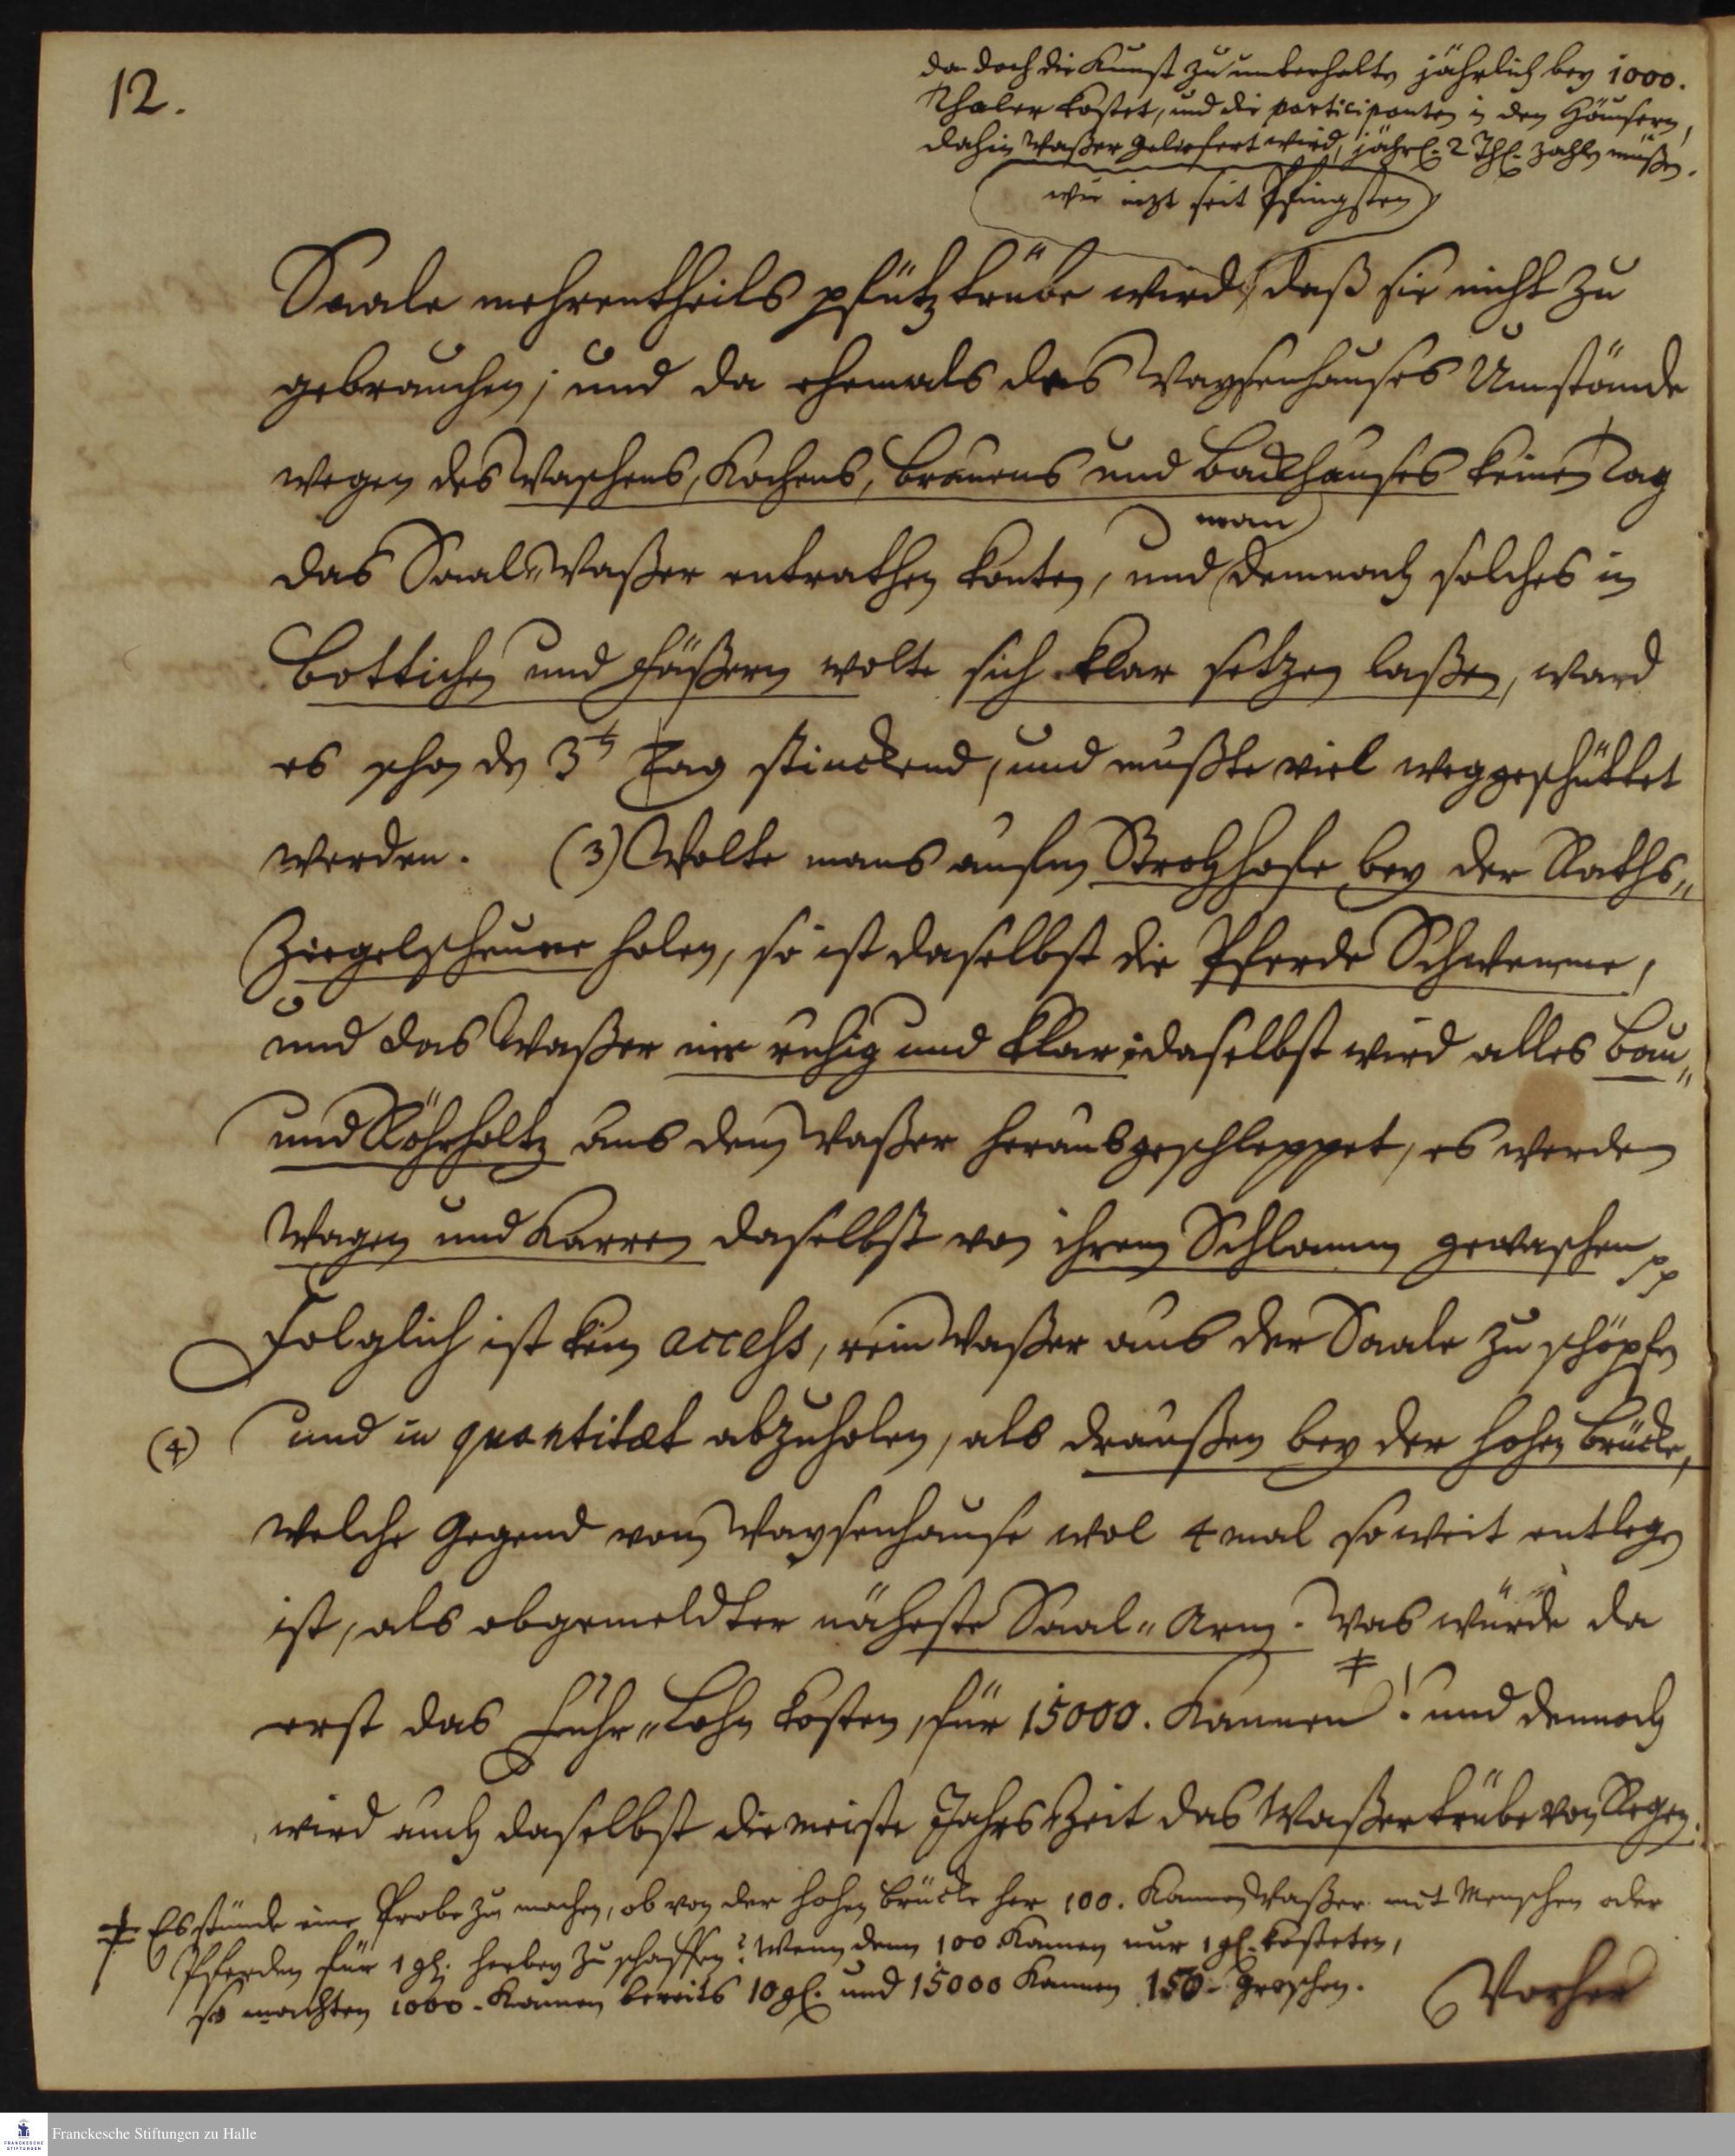 12.
da doch die Kunst zu unterhalten jährlich bey 1000.
Thaler kostet, und die participanten in den Häusern,
dahin Waßer geliefert wird, jährl. 2 Thl. zahlen müßen.
wie itzt seit Pfingsten
Saale mehrentheils pfütztrübe wird, daß sie nicht zu
gebrauchen; und da ehemals des Waysenhauses Umstände
wegen des Waschens, Kochens, Brauens und Backhauses keinen Tag
man
das Saal-Waßer entrathen konten, und demnach solches in
Bottichen und Fäßern wolte sich klar setzen laßen, ward
es schon den 3ten Tag stinckend, und mußte viel weggeschüttet
werden. (3) Wolte mans aufm Strohhofe bey der Raths-
Ziegelscheune holen, so ist daselbst die Pferde Schwemme,
und das Waßer nie ruhig und klar; daselbst wird alles Bau-
und Röhrholtz aus dem Waßer herausgeschleppet, es werden
Wagen und Karren daselbst von ihrem Schlamm gewaschen pp
Folglich ist kein access, rein Waßer aus der Saale zu schöpfen
(4) und in quantitæt abzuholen, als draußen bey der hohen Brücke,
welche Gegend vom Waysenhause wol 4 mal so weit entlegen
ist, als obgemeldter näheste Saal-Arm. Was würde da
erst das Fuhr-Lohn kosten, für 15000. Kannen ǂ! und dennoch
wird auch daselbst die meiste Jahrszeit das Waßer trübe von Regen.
ǂ Es stünde eine Probe zu machen, ob von der hohen Brücke her 100. Kannen Waßer mit Menschen oder
Pferden für 1 gl. herbey zu schaffen? Wenn denn 100 Kannen nur 1 gl. kosteten,
so machten 1000. Kannen bereits 10 gl. und 15000 Kannen 150. Groschen.
Vorher
Franckesche Stiftungen zu Halle
FRANCKESCHE
STIFTUNGEN